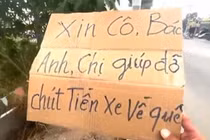 Xin Cô. Bác
Anh, Chị giúp đỡ
chút Tiền Xe Về quê